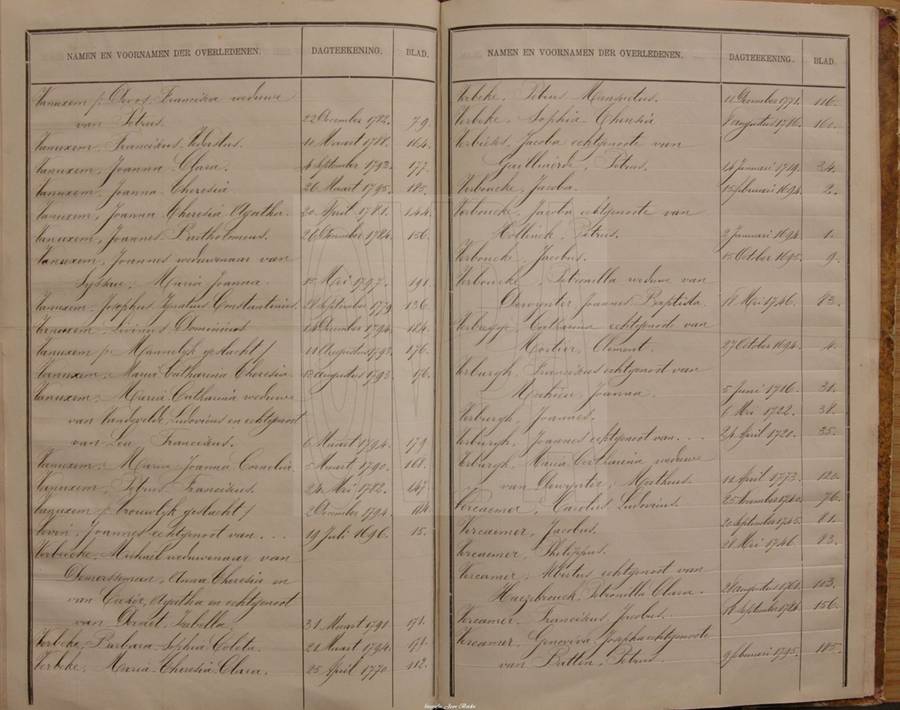 NAMEN EN VOORNAMEN DER OVERLEDENEN. DAGTEEKENING. BLAD.
Vanuxem p Devos Francisca weduwe
van Petrus. 22 December 1782. 79.
Vanuxem, Franciscus Vedastus. 10 Maart 1788. 164.
Vanuxem, Joanna Clara. 4 September 1792. 177.
Vanuxem, Joanna Theresia. 26 Maart 1795. 185.
Vanuxem, Joanna Theresia Agatha. 20 April 1781. 144.
Vanuxem, Joannes Bartholomeus. 156.
Vanuxem, Joannes weduwenaar van
Maria Joanna. 15 Mei 1797. 191.
Vanuxem, Josephus Ignatius Constantinus. 28 September 1779. 136.
Vanuxem, Livinus Dominicus December 1794. 184.
Vanuxem p. Mannelijk geslacht / 11 Augustus 1792. 176.
Vanuxem, Maria Catharina Theresia. Augustus 1792. 176.
Vanuxem, Maria Catharina weduwe
van Vandevelde Ludovicus en echtgenoot
van Franciscus. 6 Maart 1794. 179
Vanuxem, Maria Joanna Cornelia 5 Maart 1790. 168.
Vanuxem, Petrus Franciscus. 24 Mei 1782. 147.
Vanuxem p. vrouwelijk geslacht / 2 December 1794. 184.
Joannes echtgenoot van ... 19 Juli 1696. 15.
Verbeke, Michael weduwenaar van
Anna Theresia en
van Agatha en echtgenoot
van Isabella. 31 Maart 1791. 171.
Verbeke, Barbara Sophia Coleta. 21 Maart 1794. 171.
Verbeke, Maria Theresia Clara. 25 April 1770. 112.
NAMEN EN VOORNAMEN DER OVERLEDENEN. DAGTEEKENING. BLAD.
Verbeke, Petrus Mansuetus. 11 December 1771. 116.
Verbeke, Sophia Theresia 8 Augustus 1786. 160.
Jacoba echtgenoote van
Petrus. 14 Januari 1719. 34.
Verboucke, Jacoba. 15 Februari 1694. 2.
Verboucke, Jacoba echtgenoote van
Petrus. 2 Januari 1694. 1.
Verboucke, Jacobus. 15 October 1695. 9.
Verboucke, Petronilla weduwe van
Dewynter Joannes Baptista. 18 Mei 1746. 83.
Catharina echtgenoote van
Mortier Clement. 27 October 1694. 4.
Verburgh, Franciscus echtgenoot van
Mahieu Joanna. 5 Juni 1716. 31.
Verburgh, Joannes. 6 Mei 1722. 38.
Verburgh, Joannes echtgenoot van ... 24 April 1720. 35.
Verburgh, Maria Catharina weduwe
van Dewynter, Matheus. 12 April 1773. 120.
Vercaemer, Carolus Ludovicus. 25 November 1740. 76.
Vercaemer, Jacobus. 20 September 1745. 81.
Vercaemer, Philippus. 21 Mei 1746. 83.
Vercamer, Albertus echtgenoot van
Haezebrouck, Petronilla Clara. 28 Augustus 1761. 103.
Vercamer, Franciscus Jacobus. 18 September 1784. 156.
Vercamer, Genoveva Josepha echtgenoote
van Petrus. 9 Februari 1795. 185.